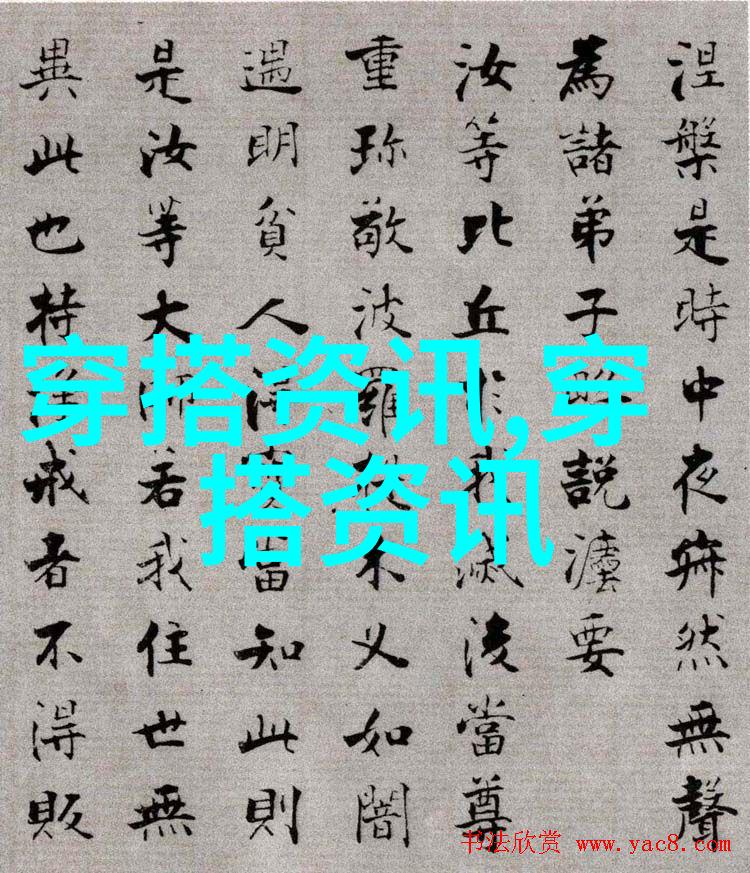 涅槃是時中夜寂然無聲
為諸弟子略說灋要
汝等比丘於我滅後當尊
重珍敬波羅提木叉如闇
遇明貧人得寶當知此則
是汝等大師若我住世無
異此也持淨戒者不得販
穿搭资讯,穿
搭资讯
书法欣赏 www.yac8.com